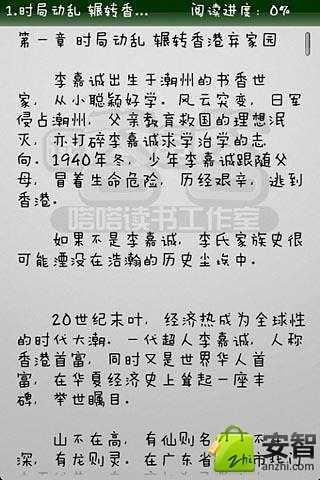 1.时局动乱 辗转香... 阅读进度：0%
第一章 时局动乱 辗转香港弃家园
李嘉诚出生于潮州的书香世
家，从小聪颖好学。风云突变，日军
侵占潮州，父亲教育救国的理想泯
灭，亦打碎李嘉诚求学治学的志
向。1940年冬，少年李嘉诚跟随父
母，冒着生命危险，历经艰辛，逃到
香港。
嗒嗒读书工作室
如果不是李嘉诚，李氏家族史很
可能湮没在浩瀚的历史尘埃中。
20世纪末叶，经济热成为全球性
的时代大潮。一代超人李嘉诚，人称
香港首富，同时又是世界华人首
富，在华夏经济史上耸起一座丰
碑，举世瞩目。
山不在高，有仙则名 不
深，有龙则灵。在广东省 市
安智
zhi
anzhi.com